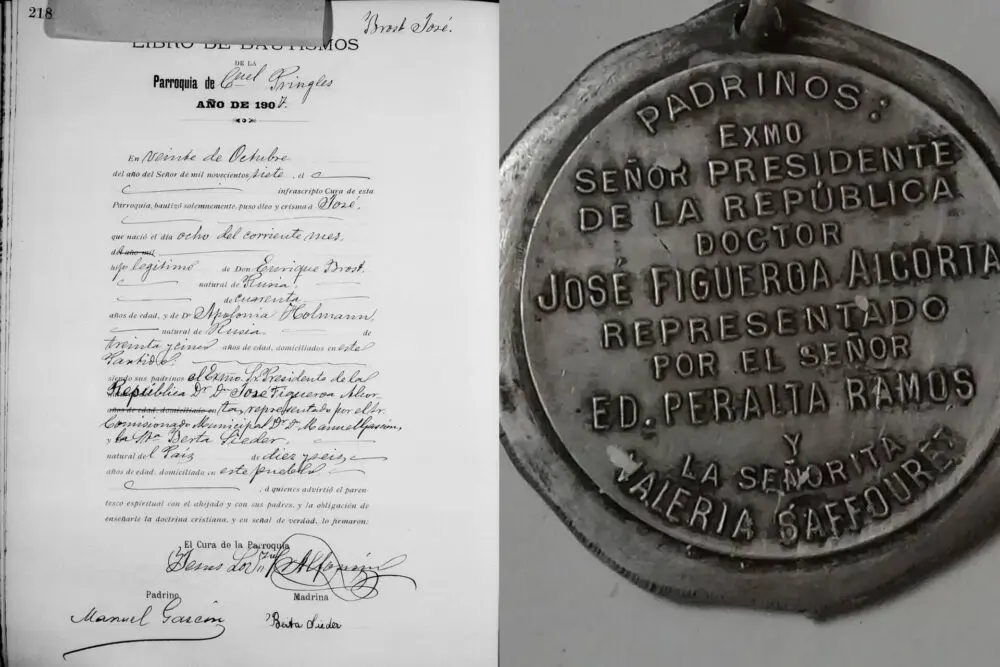 218
Brost José.
LIBRO DE BAUTISMOS
DE LA
Parroquia de Cnel Pringles
AÑO DE 1907.
En veinte de Octubre
del año del Señor de mil novecientos siete, á
infrascripto Cura de esta
Parroquia, bautizó solemnemente, puso óleo y crisma á José,
que nació el día ocho del corriente mes,
del año mil
hijo legítimo de Don Enrique Brost.
natural de Rusia,
de cuarenta
años de edad, y de Da Apolonia Holmann,
natural de Rusia. de
treinta y cinco años de edad, domiciliados en este
Partido.
siendo sus padrinos el Exmo. Sr. Presidente de la
República Dr. Dn José Figueroa Alcor-
años de edad, domiciliado en ta, representado por el Sr.
Comisionado Municipal Dr. Dn Manuel Gascón,
y la Srta Berta Sieder.
natural del País de diez y seis
años de edad, domiciliado en este pueblo
, á quienes advirtió el paren-
tesco espiritual con el ahijado y con sus padres, y la obligación de
enseñarle la doctrina cristiana, y en señal de verdad, lo firmaron:
El Cura de la Parroquia
Padrino
Madrina
Manuel Gascón
Berta Sieder
PADRINOS:
EXMO
SEÑOR PRESIDENTE
DE LA REPÚBLICA
DOCTOR
JOSÉ FIGUEROA ALCORTA
REPRESENTADO
POR EL SEÑOR
ED. PERALTA RAMOS
Y
LA SEÑORITA
VALERIA SAFFOURET